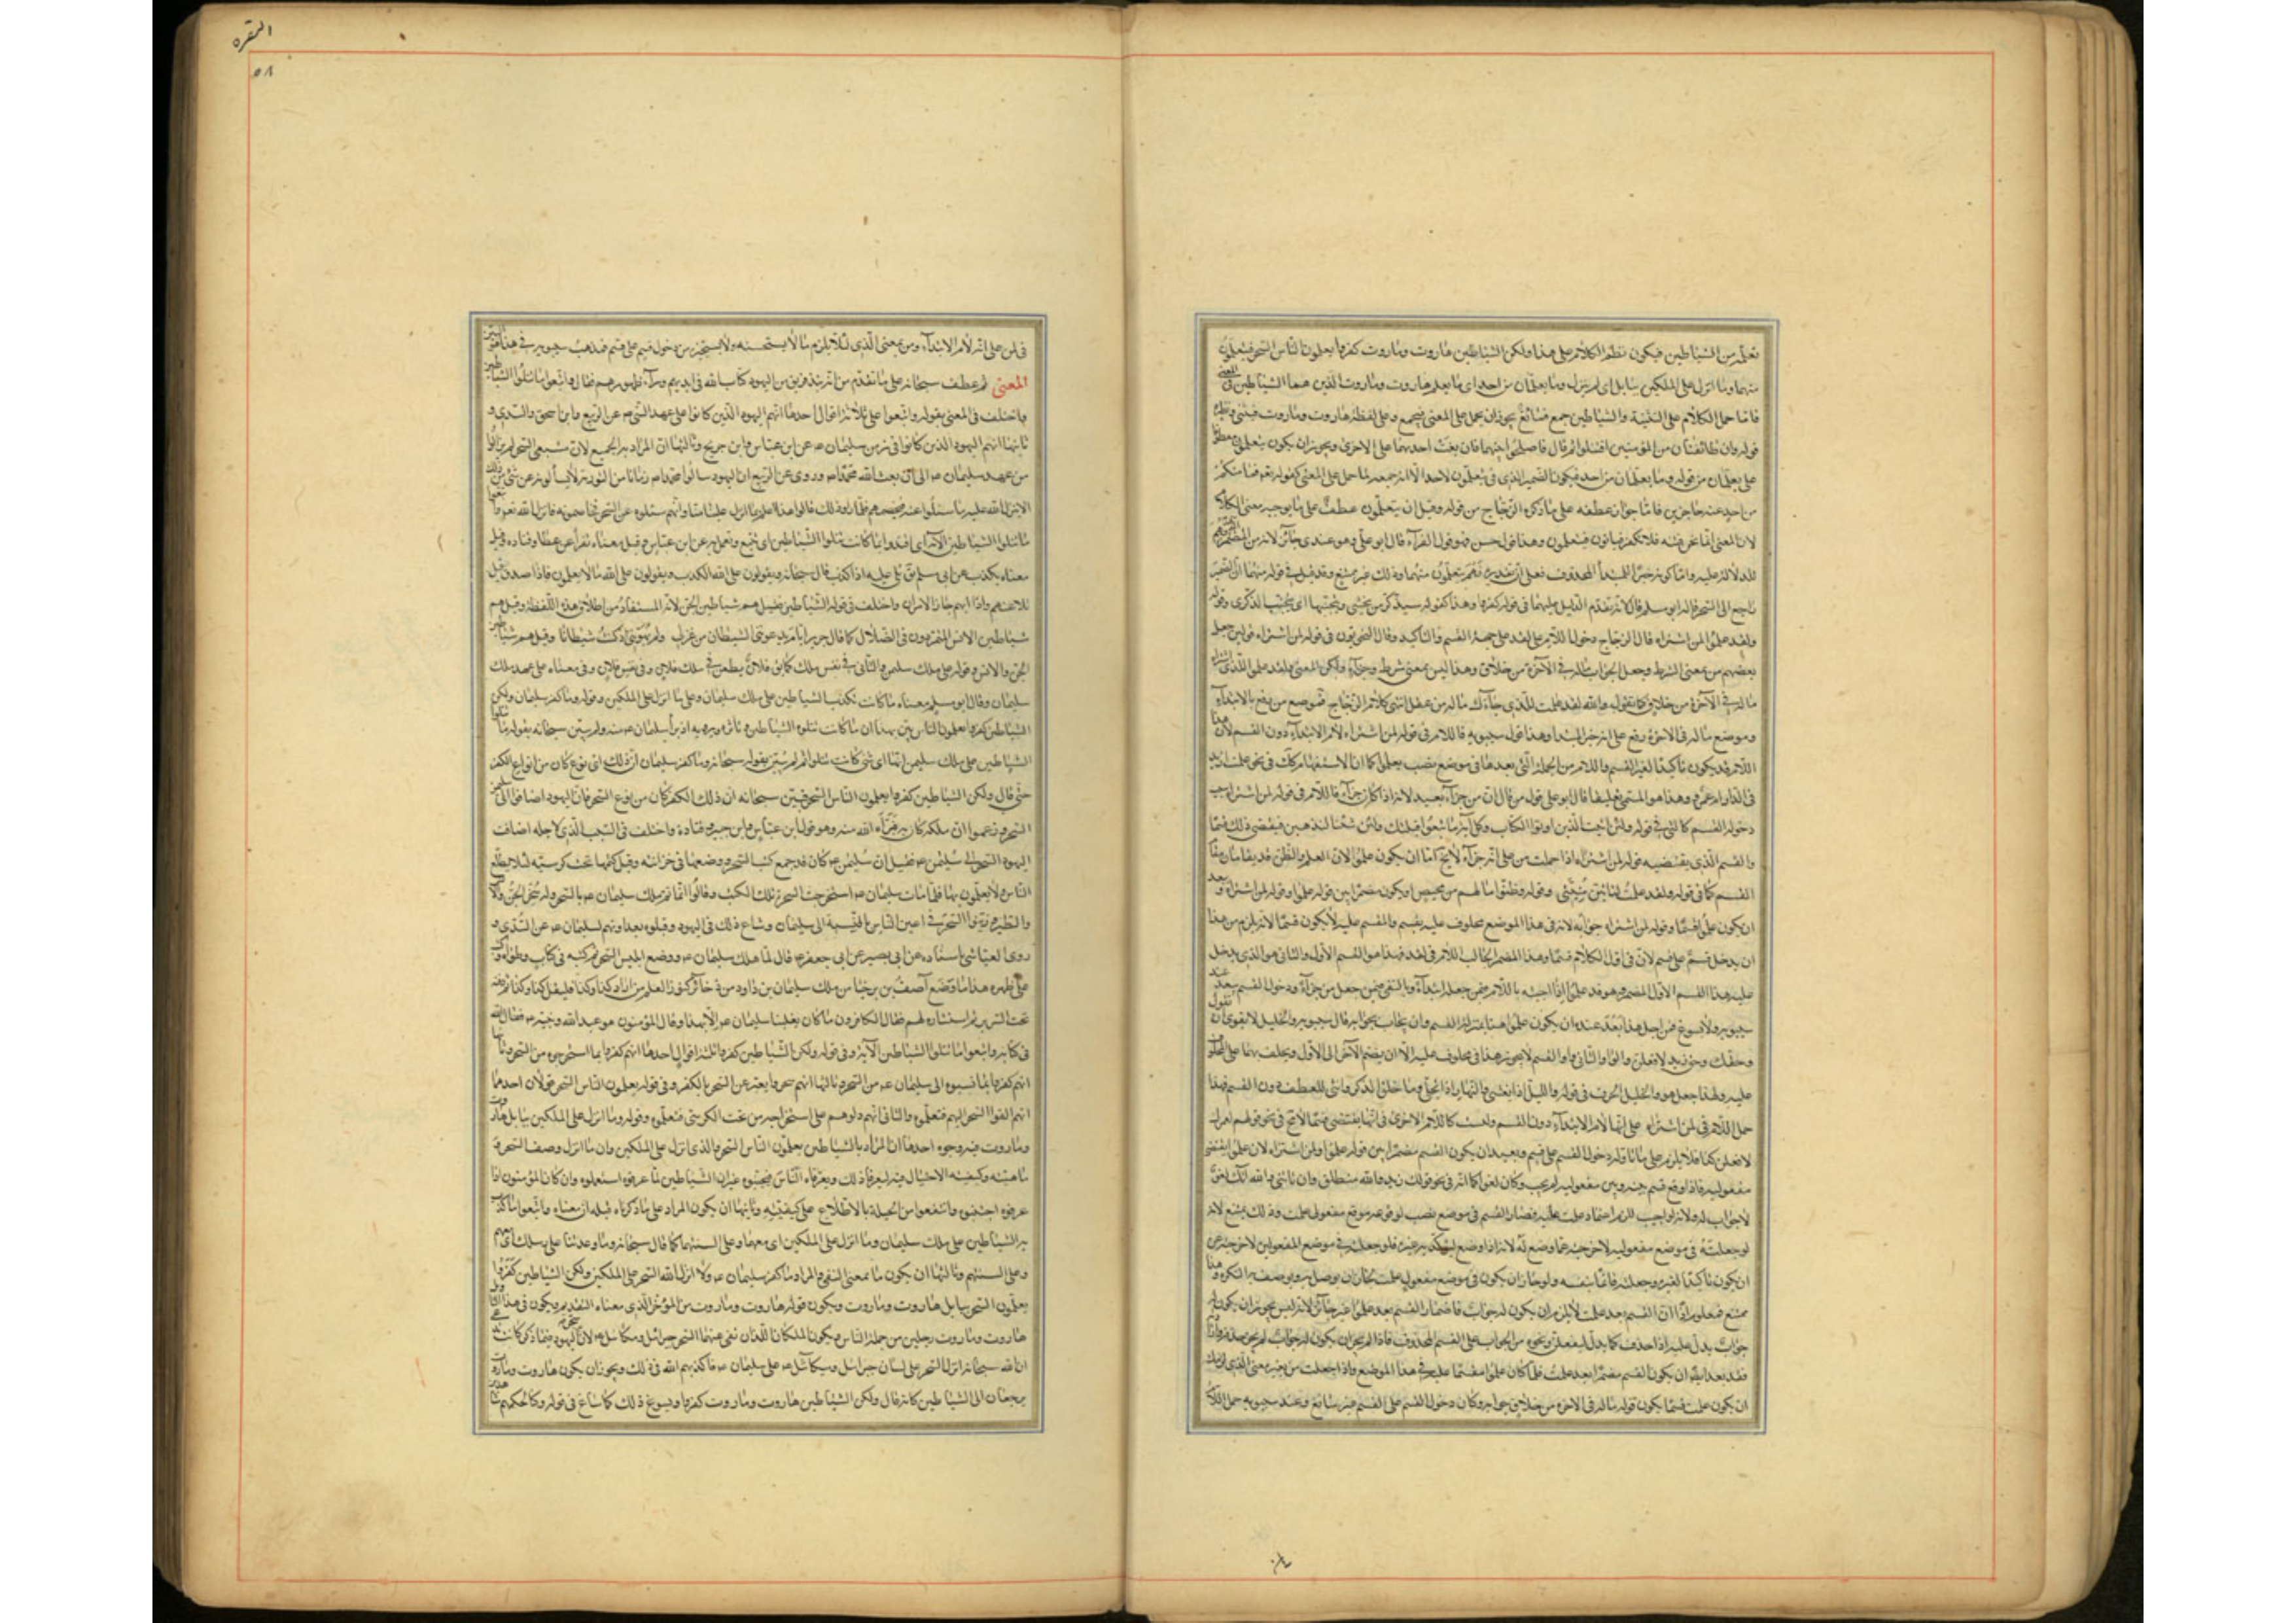 تعلمه من الشياطين فيكون نظم الكلام على هذا ولكن الشياطين هاروت وماروت كفروا يعلمون الناس السحر فيتعلمون
منهما وما انزل على الملكين ببابل اى لم ينزل وما يعلمان من احد اى ما يعلم هاروت وماروت الذين هما الشياطين فى المعنى
فاما حمل الكلام على التثنية والشياطين جمع فسائغ يجوز ان يحمل على المعنى فيجمع وعلى لفظة هاروت وماروت فيثنى ونظيره
قوله وان طائفتان من المؤمنين اقتتلوا ثم قال فاصلحوا بينهما فان بغت احديهما على الاخرى ويجوز ان يكون يتعلمون معطوفا
على يعلمان من قوله وما يعلمان من احد فيكون الضمير الذى فى يتعلمون لاحد الا انه جمعه لما حمل على المعنى كقوله تعه فما منكم
من احد عنه حاجزين فاما جواز عطفه على ما ذكره الزجاج من قوله وقيل ان يتعلمون عطف على ما يوجبه معنى الكلام
لان المعنى انما نحن فتنة فلا تكفر فيابون فيتعلمون وهذا قول حسن فهو قول الفراء قال ابو على وهو عندى جائز لانه من المضمر
للدلالة عليه واما كونه خبر المبتدأ المحذوف فعلى ان تقديره فهم يتعلمون منهما وذلك غير ممتنع وقد قيل فى قوله منهما ان الضمير
راجع الى السحر قاله ابو مسلم قال لانه تقدم الدليل عليهما فى قوله كفروا وهذا كقوله سيذكر من يخشى ويتجنبها اى يتجنب الذكرى وقوله
ولقد علموا لمن اشتراه قال الزجاج دخول اللام على لقد على جهة القسم والتأكيد وقال النحويون فى قوله لمن اشتراه قولين جعل
بعضهم من بمعنى الشرط وجعل الجواب ما له فى الآخرة من خلاق وهذا ليس بمعنى شرط وجزاء ولكن المعنى ولقد علموا للذى اشتراه
ما له فى الآخرة من خلاق كما تقول والله لقد علمت للذى جاءك ما له من عقل انتهى كلام الزجاج فموضع من رفع بالابتداء
وموضع ما له فى الاخرة رفع على انه خبر المبتدا وهذا قول سيبويه فاللام فى قوله لمن اشتراه لام الابتداء دون القسم لان هذا
اللام قد يكون تأكيدا لغير القسم واللام من الجملة التى بعدها فى موضع نصب بعلموا كما ان الاستفهام كذلك فى نحو علمت ازيد
فى الدار ام عمرو وهذا هو المسمى تعليقا قال ابو على قوله من قال ان من جزاء بعيد لانه اذا كان جزاء فاللام فى قوله لمن اشتراه
دخوله القسم كالتى فى قوله ولئن اتيت الذين اوتوا الكتاب بكل آية ما تبعوا قبلتك ولئن شئنا لنذهبن فيقتضى ذلك قسما
والقسم الذى يقتضيه قوله لمن اشتراه اذا حملت من على انه جزاء لا يخ اما ان يكون علموا لان العلم والظن قد يقامان مقام
القسم كما فى قوله ولقد علمت لتأتين منيتى وقوله وظنوا ما لهم من محيص او يكون مضمرا بين قوله علموا وقوله لمن اشتراه وبعد
ان يكون علموا قسما وقوله لمن اشتراه جوابه لانه فى هذا الموضع محلوف عليه بقسم والمقسم عليه لا يكون قسما لانه يلزم من هذا
ان يدخل قسم على قسم لان فى اول الكلام قسما وهذا المضمر الجالب للام فى لقد فهذا هو القسم الاول والثانى هو الذى يدخل
سيبويه ولا يسوغ فمن اجل هذا بعد عنده ان يكون علموا هنا بمنزلة القسم وان يجاب بجوابه قال سيبويه والخليل لا يقوى ان تقول
وحقك وحق زيد لافعلن والواو الثانية واو القسم لا يجوز هذا فى محلوف عليه الا ان يضم الآخر الى الاول ويحلف بهما على المحلوف
عليه ولهذا جعل هو والخليل الحرف فى قوله والليل اذا يغشى والنهار اذا تجلى وما خلق الذكر والانثى للعطف دون القسم فهذا
حمل اللام فى لمن اشتراه على انها لام الابتداء دون القسم وليست كاللام الاخرى فى انها يقتضى قسما لا مح فى نحو قولهم
لافعلن كذا فلا يلزم على ما تاوله دخول القسم على قسم وبعيد ان يكون القسم مضمرا بين قوله علموا ولمن اشتراه لان علموا يقتضى
مفعوليه فاذا وقع قسم بينه وبين مفعوليه لم يجب وكان لغوا كما انه فى نحو قولك زيد والله منطلق وان تأتنى والله آتك لغو
لا جواب له ولانه لو اجيب للزم اعتماد علمت عليه فصار القسم فى موضع نصب لوقوعه موقع مفعولى علمت وذلك يمتنع لانه
لو جعلته فى موضع مفعوليه لاخرجته عما وضع له لانه اذا وضع ليؤكد به غيره فلو جعلته فى موضع المفعولين لاخرجته عن
ان يكون تأكيدا لغيره وجعلته قائما بنفسه ولو جاز ان يكون فى موضع مفعولى علمت لجاز ان يوصل به ويوصف به النكرة وهذا
ممتنع فمعلوم اذا ان القسم بعد علمت لا يلزم ان يكون له جواب فاضمار القسم بعد علموا غير جائز لانه ليس يجوز ان يكون له
جواب يدل عليه اذا حذف كما يدل ليفعلن ونحوه من الجواب على القسم المحذوف فاذا لم يجز ان يكون له جواب لم يجز حذفه
فقد بعد ايضا ان يكون القسم مضمرا بعد علمت فلما كان علموا مقسما عليه فى هذا الموضع واذا جعلت من بمعنى الذى
ان يكون علمت قسما يكون قوله ما له فى الاخرة من خلاق جوابه وكان دخول القسم على القسم غير سائغ وعند سيبويه حمل اللام
البقره
٥٨
فى لمن على انه لام الابتداء ومن بمعنى الذى لئلا يلزم ما لا يستحسنه ولا يستجيزه من دخول قسم على قسم فذهب سيبويه فى هذا هو
المعنى ثم عطف سبحانه على ما تقدم من انه نبذ فريق من اليهود كتاب الله فى ايديهم وراء ظهورهم فقال واتبعوا ما تتلوا الشياطين
واختلف فى المعنى بقوله واتبعوا على ثلاثة اقوال احدها انهم اليهود الذين كانوا على عهد النبى ص عن الربيع وابن اسحق والسدى و
ثانيها انهم اليهود الذين كانوا فى زمن سليمان ع عن ابن عباس وابن جريج وثالثها ان المراد به الجميع لان متبعى السحر لم يزالوا
من عهد سليمان ع الى ان بعث الله محمدا ص وروى عن الربيع ان اليهود سالوا محمدا ص زمانا من التورية لا يسألونه عن شىء من ذلك
الا انزل الله عليه ما سئلوا عنه فيخصمهم فلما راوا ذلك قالوا هذا اعلم بما انزل علينا منا وانهم سئلوه عن السحر وخاصموه فانزل الله تعه واتبعوا
ما تتلوا الشياطين الآية اى اقتدوا بما كانت تتلوا الشياطين اى تتبع وتعمل به عن ابن عباس وقيل معناه تقرأ عن عطا وقتاده وقيل
معناه تكذب عن ابى مسلم يق تلى عليه اذا كذب قال سبحانه ويقولون على الله الكذب ويقولون على الله ما لا يعلمون فاذا صدق قيل
تلا عنه واذا ابهم جاز الامران واختلف فى قوله الشياطين فقيل هم شياطين الجن لانه المستفاد من اطلاق هذه اللفظة وقيل هم
شياطين الانس المتمردون فى الضلال كما قال جرير ايام يدعوننى الشيطان من غزلى ولم يهويننى اذ كنت شيطانا وقيل هم شياطين
الجن والانس وقوله على ملك سليمن والثانى فى نفس ملك كما يق فلان يطعن فى ملك فلان وفى نفس فلان وفى معناه على عهد ملك
سليمان وقال ابو مسلم معناه ما كانت تكذب الشياطين على ملك سليمان وعلى ما انزل على الملكين وقوله وما كفر سليمان ولكن
الشياطين كفروا يعلمون الناس بين بهذا ان ما كانت تتلوه الشياطين وتاثره وترويه اذ برأ سليمان ع منه ولم يبين سبحانه بقوله ما تتلوا
الشياطين على ملك سليمن انها اى شىء كانت تتلوا ثم لم يبين بقوله سبحانه وما كفر سليمان ان ذلك اى نوع كان من انواع الكفر
حتى قال ولكن الشياطين كفروا يعلمون الناس السحر فبين سبحانه ان ذلك الكفر كان من نوع السحر فان اليهود اضافوا الى سليمن
السحر وزعموا ان ملكه كان به فبرأه الله منه وهو قول ابن عباس وابن جبير وقتادة واختلف فى السبب الذى لاجله اضاف
اليهود السحر الى سليمن ع فقيل ان سليمن ع كان قد جمع كتب السحرة ووضعها فى خزانته وقيل كتمها تحت كرسيه لئلا يطلع
الناس ولا يعلمون بها فلما مات سليمان ع استخرجت السحرة تلك الكتب وقالوا انما تم ملك سليمان ع بالسحر وله سخر الجن والانس
والطير وزينوا السحر فى اعين الناس بالنسبة الى سليمان وشاع ذلك فى اليهود وقبلوه بعداوتهم لسليمان ع عن السدى و
روى العياشى باسناده عن ابى بصير عن ابى جعفر ع قال لما هلك سليمان ع ووضع ابليس السحر ثم كتبه فى كتاب وطواه وكتب
على ظهره هذا ما وضع آصف بن برخيا من ملك سليمان بن داود من ذخائر كنوز العلم من اراد كذا وكذا فليفعل كذا وكذا ثم دفنه
تحت السرير ثم استثاره لهم فقال الكافرون ما كان يغلبنا سليمان ع الا بهذا وقال المؤمنون هو عبد الله ونبيه ع فقال الله
فى كتابه واتبعوا ما تتلوا الشياطين الآية وفى قوله ولكن الشياطين كفروا ثلثة اقوال احدها انهم كفروا بما استخرجوه من السحر وثانيها
انهم كفروا بما نسبوه الى سليمان ع من السحر وثالثها انهم سحروا يعبر عن السحر بالكفر وفى قوله يعلمون الناس السحر قولان احدهما
انهم القوا السحر اليهم فتعلموه والثانى انهم دلوهم على استخراجه من تحت الكرسى فتعلموه وقوله وما انزل على الملكين ببابل هاروت
وماروت فيه وجوه احدها ان المراد بالشياطين يعلمون الناس السحر والذى انزل على الملكين وان ما انزل وصف السحر و
ماهيته وكيفية الاحتيال فيه ليعرفا ذلك ويعرفاه الناس فيجتنبوه غير ان الشياطين لما عرفوه استعملوه وان كان المؤمنون اذا
عرفوه اجتنبوه وانتفعوا من الحيلة بالاطلاع على كيفيته وثانيها ان يكون المراد على ما ذكرناه قبله ان معناه واتبعوا ما كذب
به الشياطين على ملك سليمان وما انزل على الملكين اى معهما وعلى السنتهما كما قال سبحانه وما وعدتنا على رسلك اى معهم
وعلى السنتهم وثالثها ان يكون ما بمعنى النفى والمراد ما كفر سليمان ع ولا انزل الله السحر على الملكين ولكن الشياطين كفروا
يعلمون السحر ببابل هاروت وماروت ويكون قوله هاروت وماروت من المؤخر الذى معناه التقديم ويكون فى هذا
هاروت وماروت رجلين من جملة الناس ويكون الملكان اللذان نفى عنهما السحر جبرائيل وميكائيل ع لان سحرة اليهود فيما ذكر كانت تدعى
ان الله سبحانه انزل السحر على لسان جبرائيل وميكائيل ع على سليمان ع فاكذبهم الله فى ذلك ويجوز ان يكون هاروت وماروت
يرجعان الى الشياطين كانه قال ولكن الشياطين هاروت وماروت كفروا ويسوغ ذلك كما ساغ فى قوله وكنا لحكمهم شاهدين